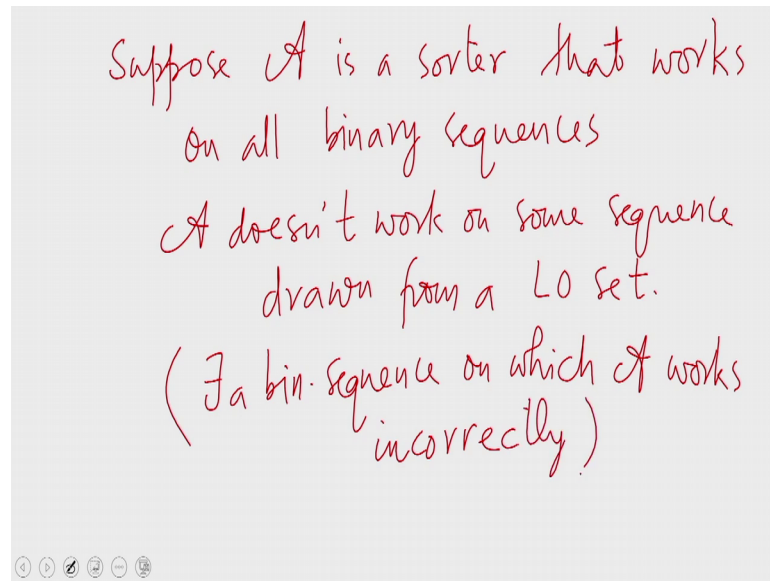 Suppose A is a sorter that works
on all binary sequences
A doesn't work on some sequence
drawn from a LO set.
(∃ a bin. sequence on which A works
incorrectly)